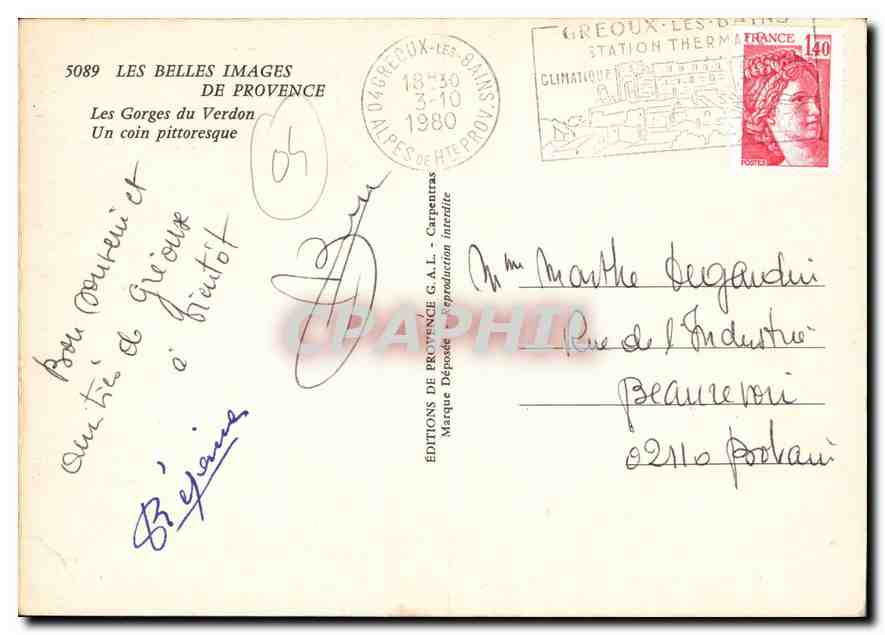 5089 LES BELLES IMAGES
DE PROVENCE
Les Gorges du Verdon
Un coin pittoresque
04 GREOUX-LES-BAINS
18H30
3-10
1980
ALPES DE HTE PROV.
GREOUX·LES·BAINS
STATION THERMA
CLIMATIQUE
FRANCE
1,40
POSTES
Bon souvenir et
amitiés de Gréoux
à bientôt
Régine
ÉDITIONS DE PROVENCE G.A.L. - Carpentras
Marque Déposée - Reproduction interdite
CPAPHIL
Mme Marthe Degardin
Rue de l'Industrie
Beaurevoir
02110 Bohain